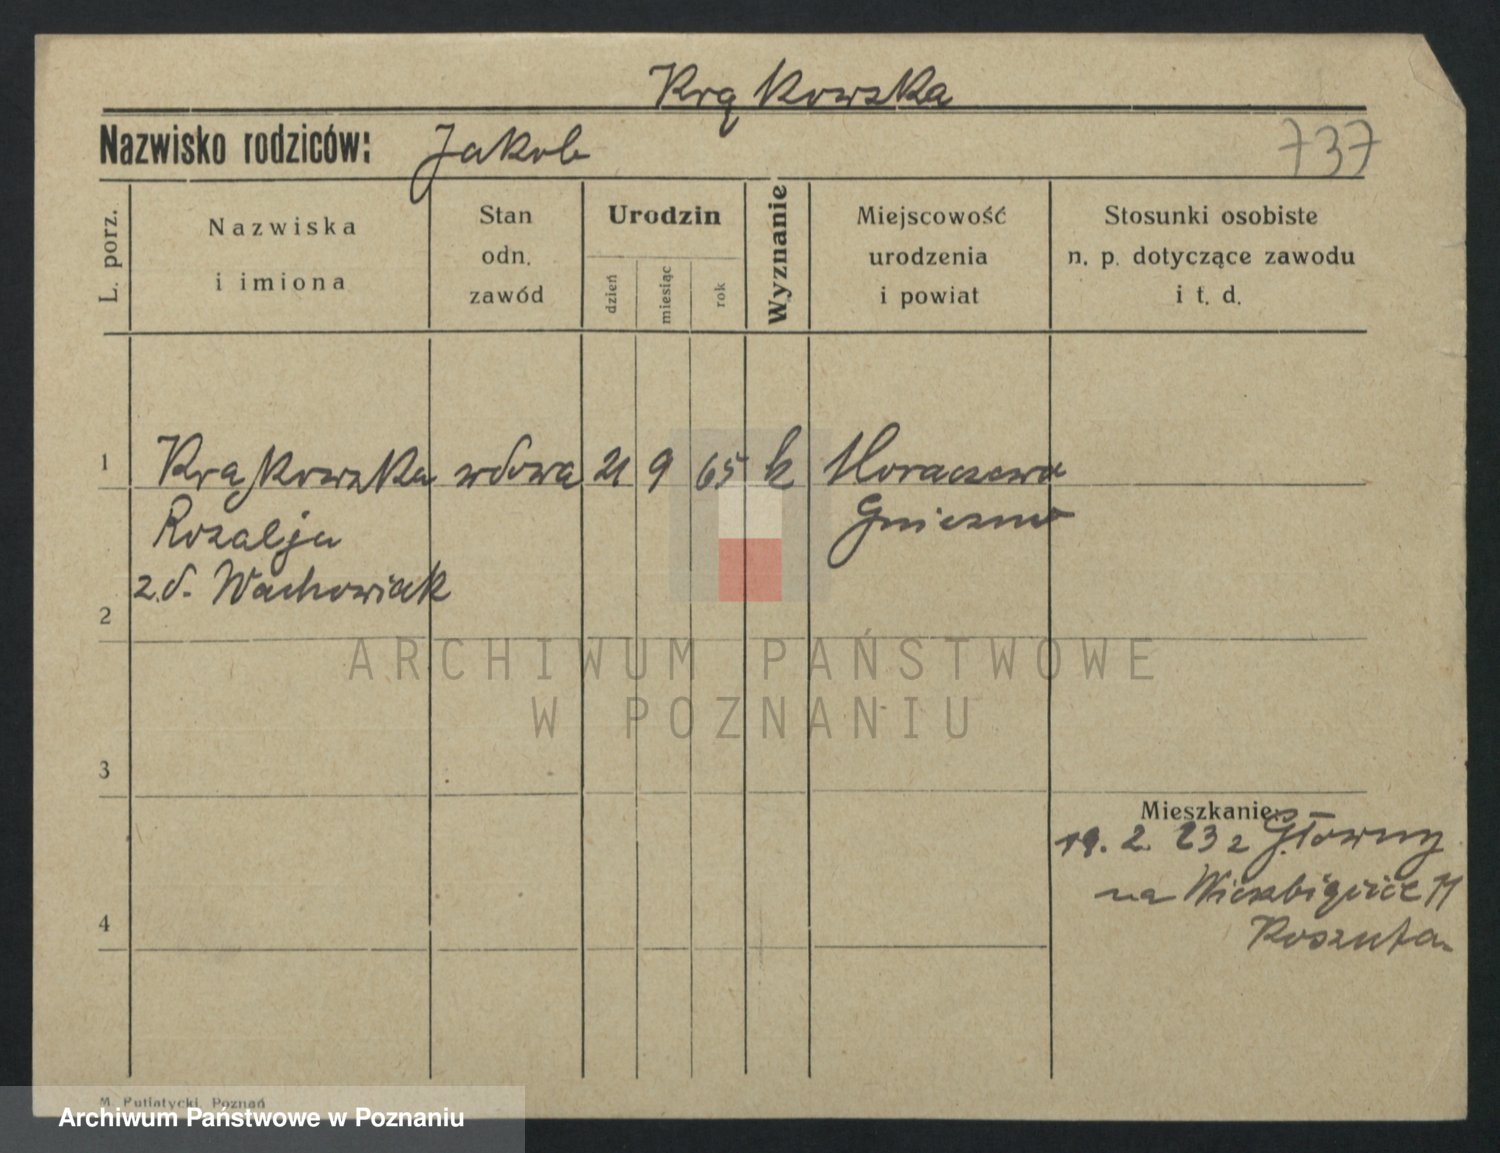 Krąkowska
Nazwisko rodziców: Jakob
737
L. porz.
Nazwiska
i imiona
Stan
odn.
zawód
Urodzin
dzień
miesiąc
rok
Wyznanie
Miejscowość
urodzenia
i powiat
Stosunki osobiste
n. p. dotyczące zawodu
i t. d.
1 Krąkowska wdowa 21 9 65 k
Rozalja Gniezno
z.d. Wachowiak
2
ARCHIWUM PAŃSTWOWE
W POZNANIU
3
Mieszkanie:
19. 2. 23 z Główny
na
4
M. Putiatycki, Poznań
Archiwum Państwowe w Poznaniu